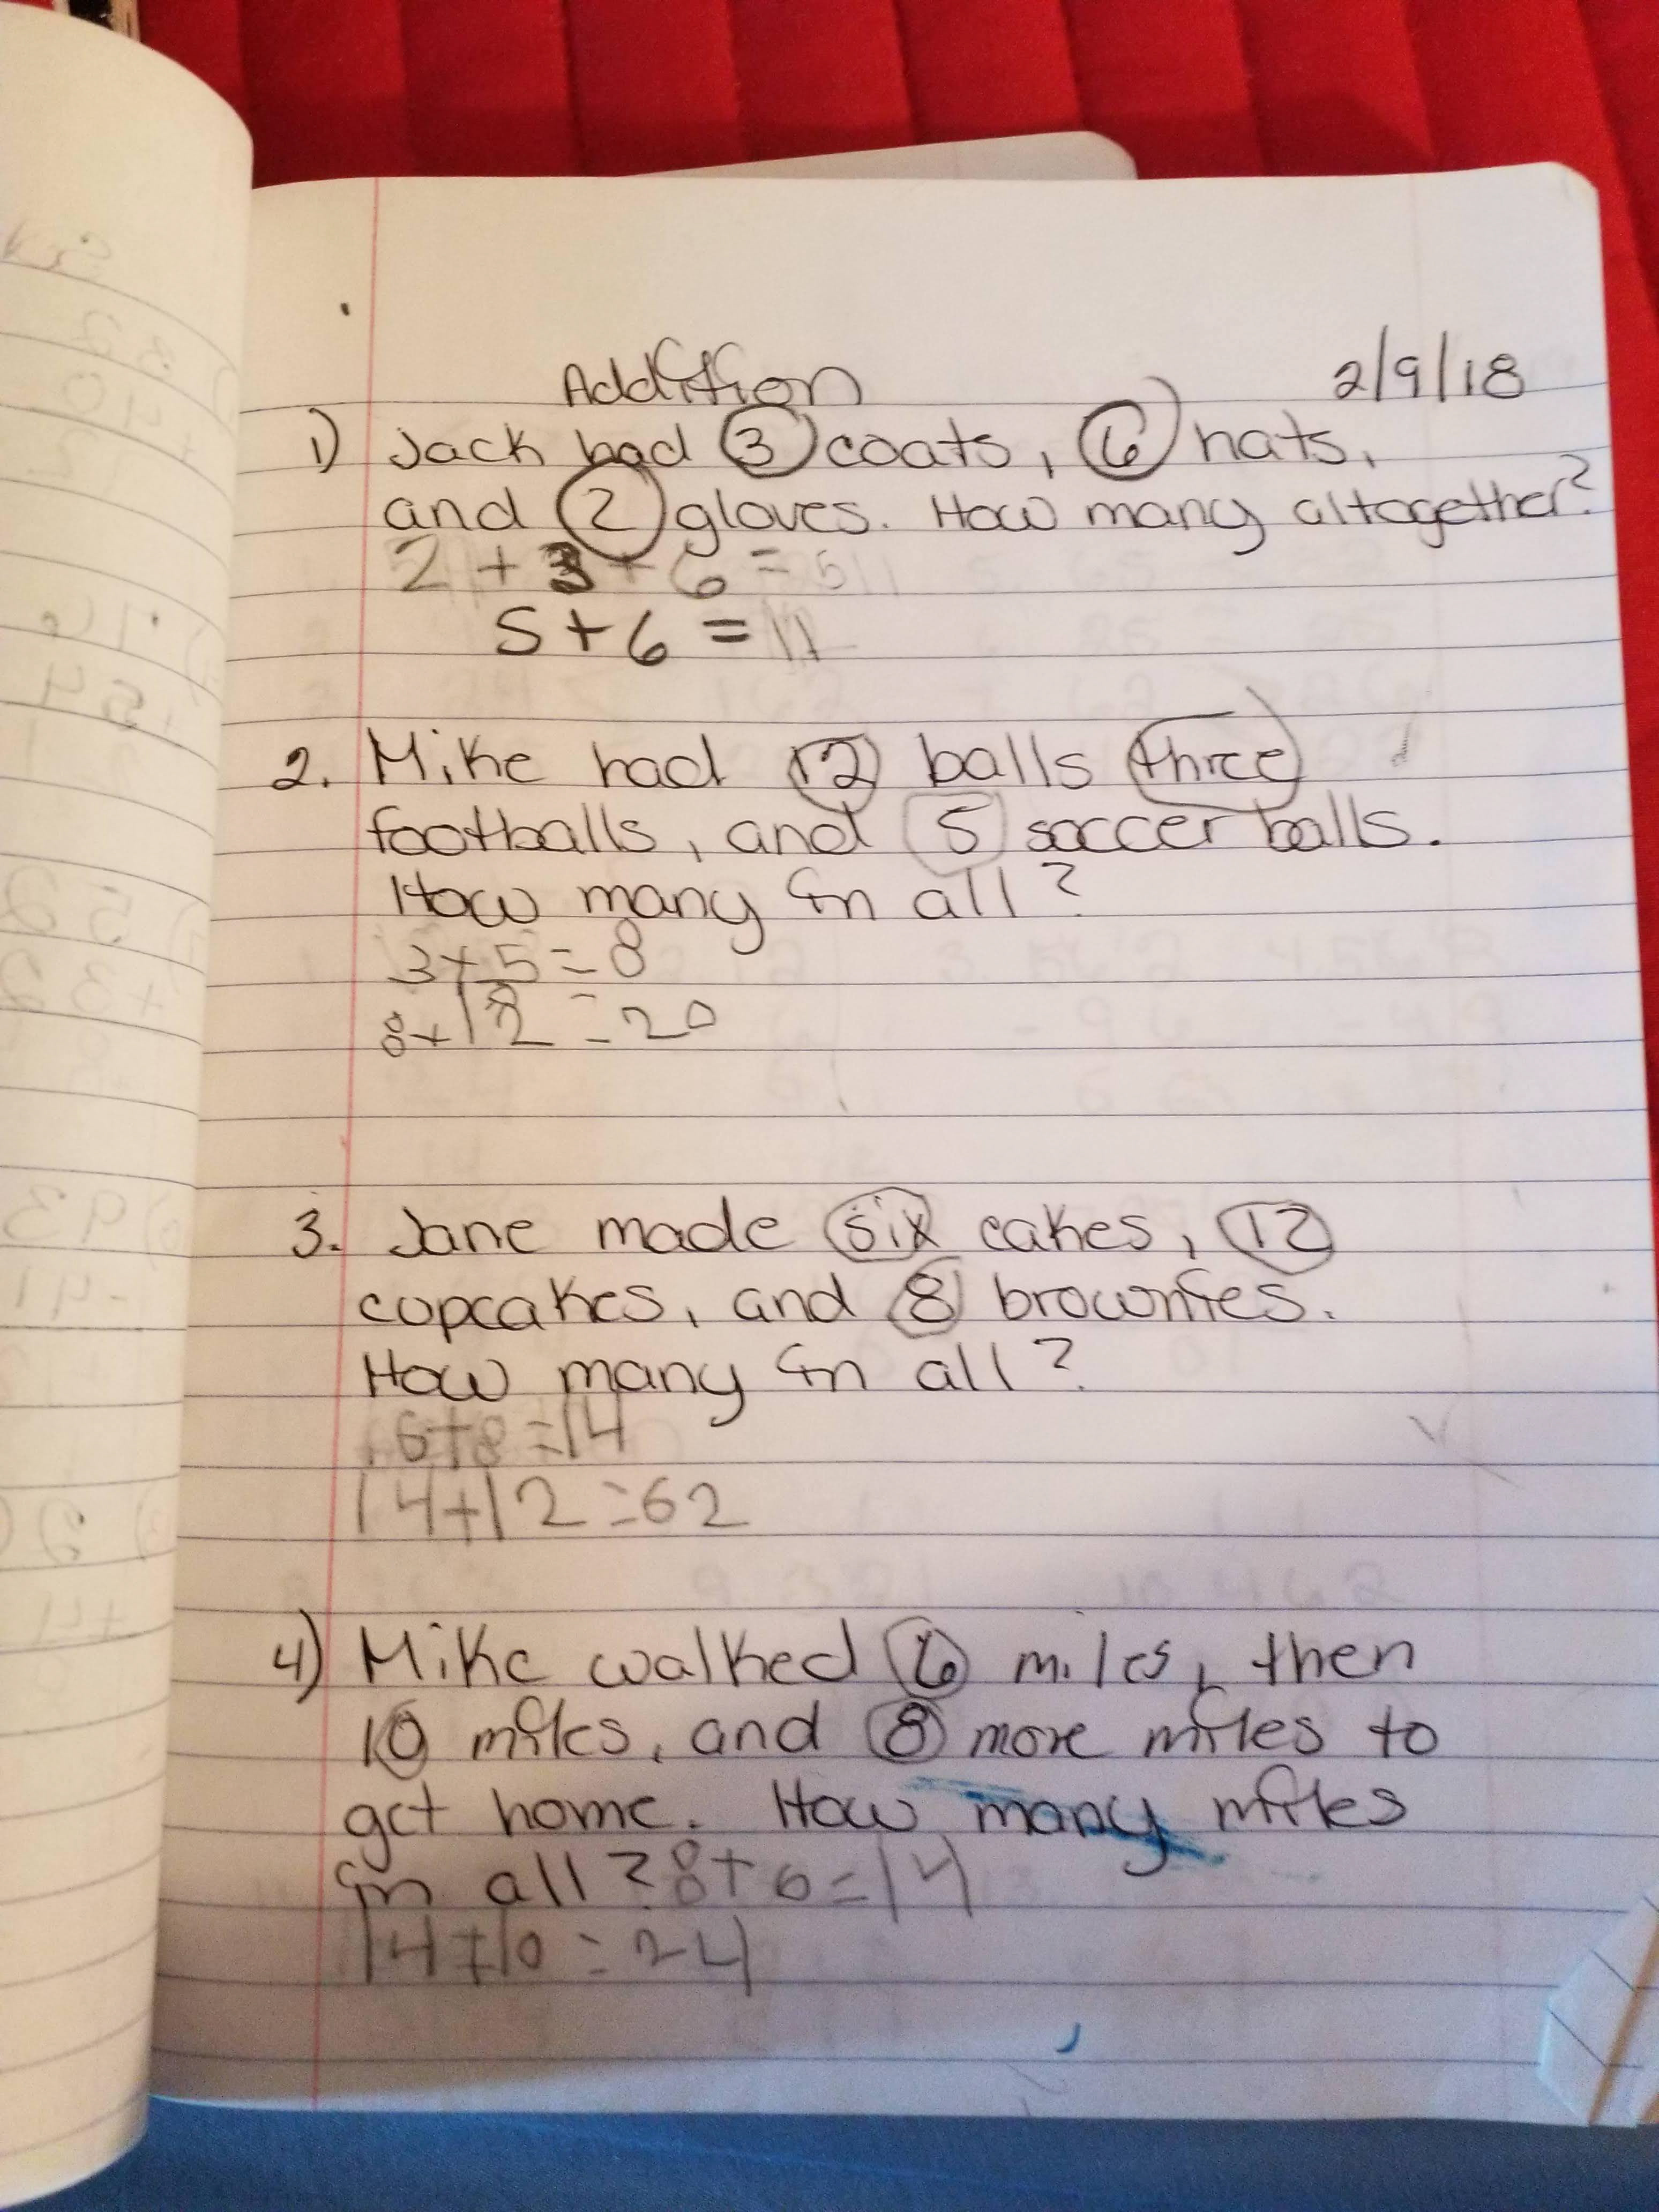 Addition 2/9/18
1) Jack had 3 coats, 6 hats,
and 2 gloves. How many altogether?
2 + 3 + 6 = 11
5 + 6 = 11
2. Mike had 12 balls three
footballs, and 5 soccer balls.
How many in all?
3+5=8
8+12=20
3. Jane made six cakes, 12
cupcakes, and 8 brownies.
How many in all?
6+8=14
14+12=62
4) Mike walked 6 miles, then
10 miles, and 8 more miles to
get home. How many miles
in all? 8+6=14
14+10=24